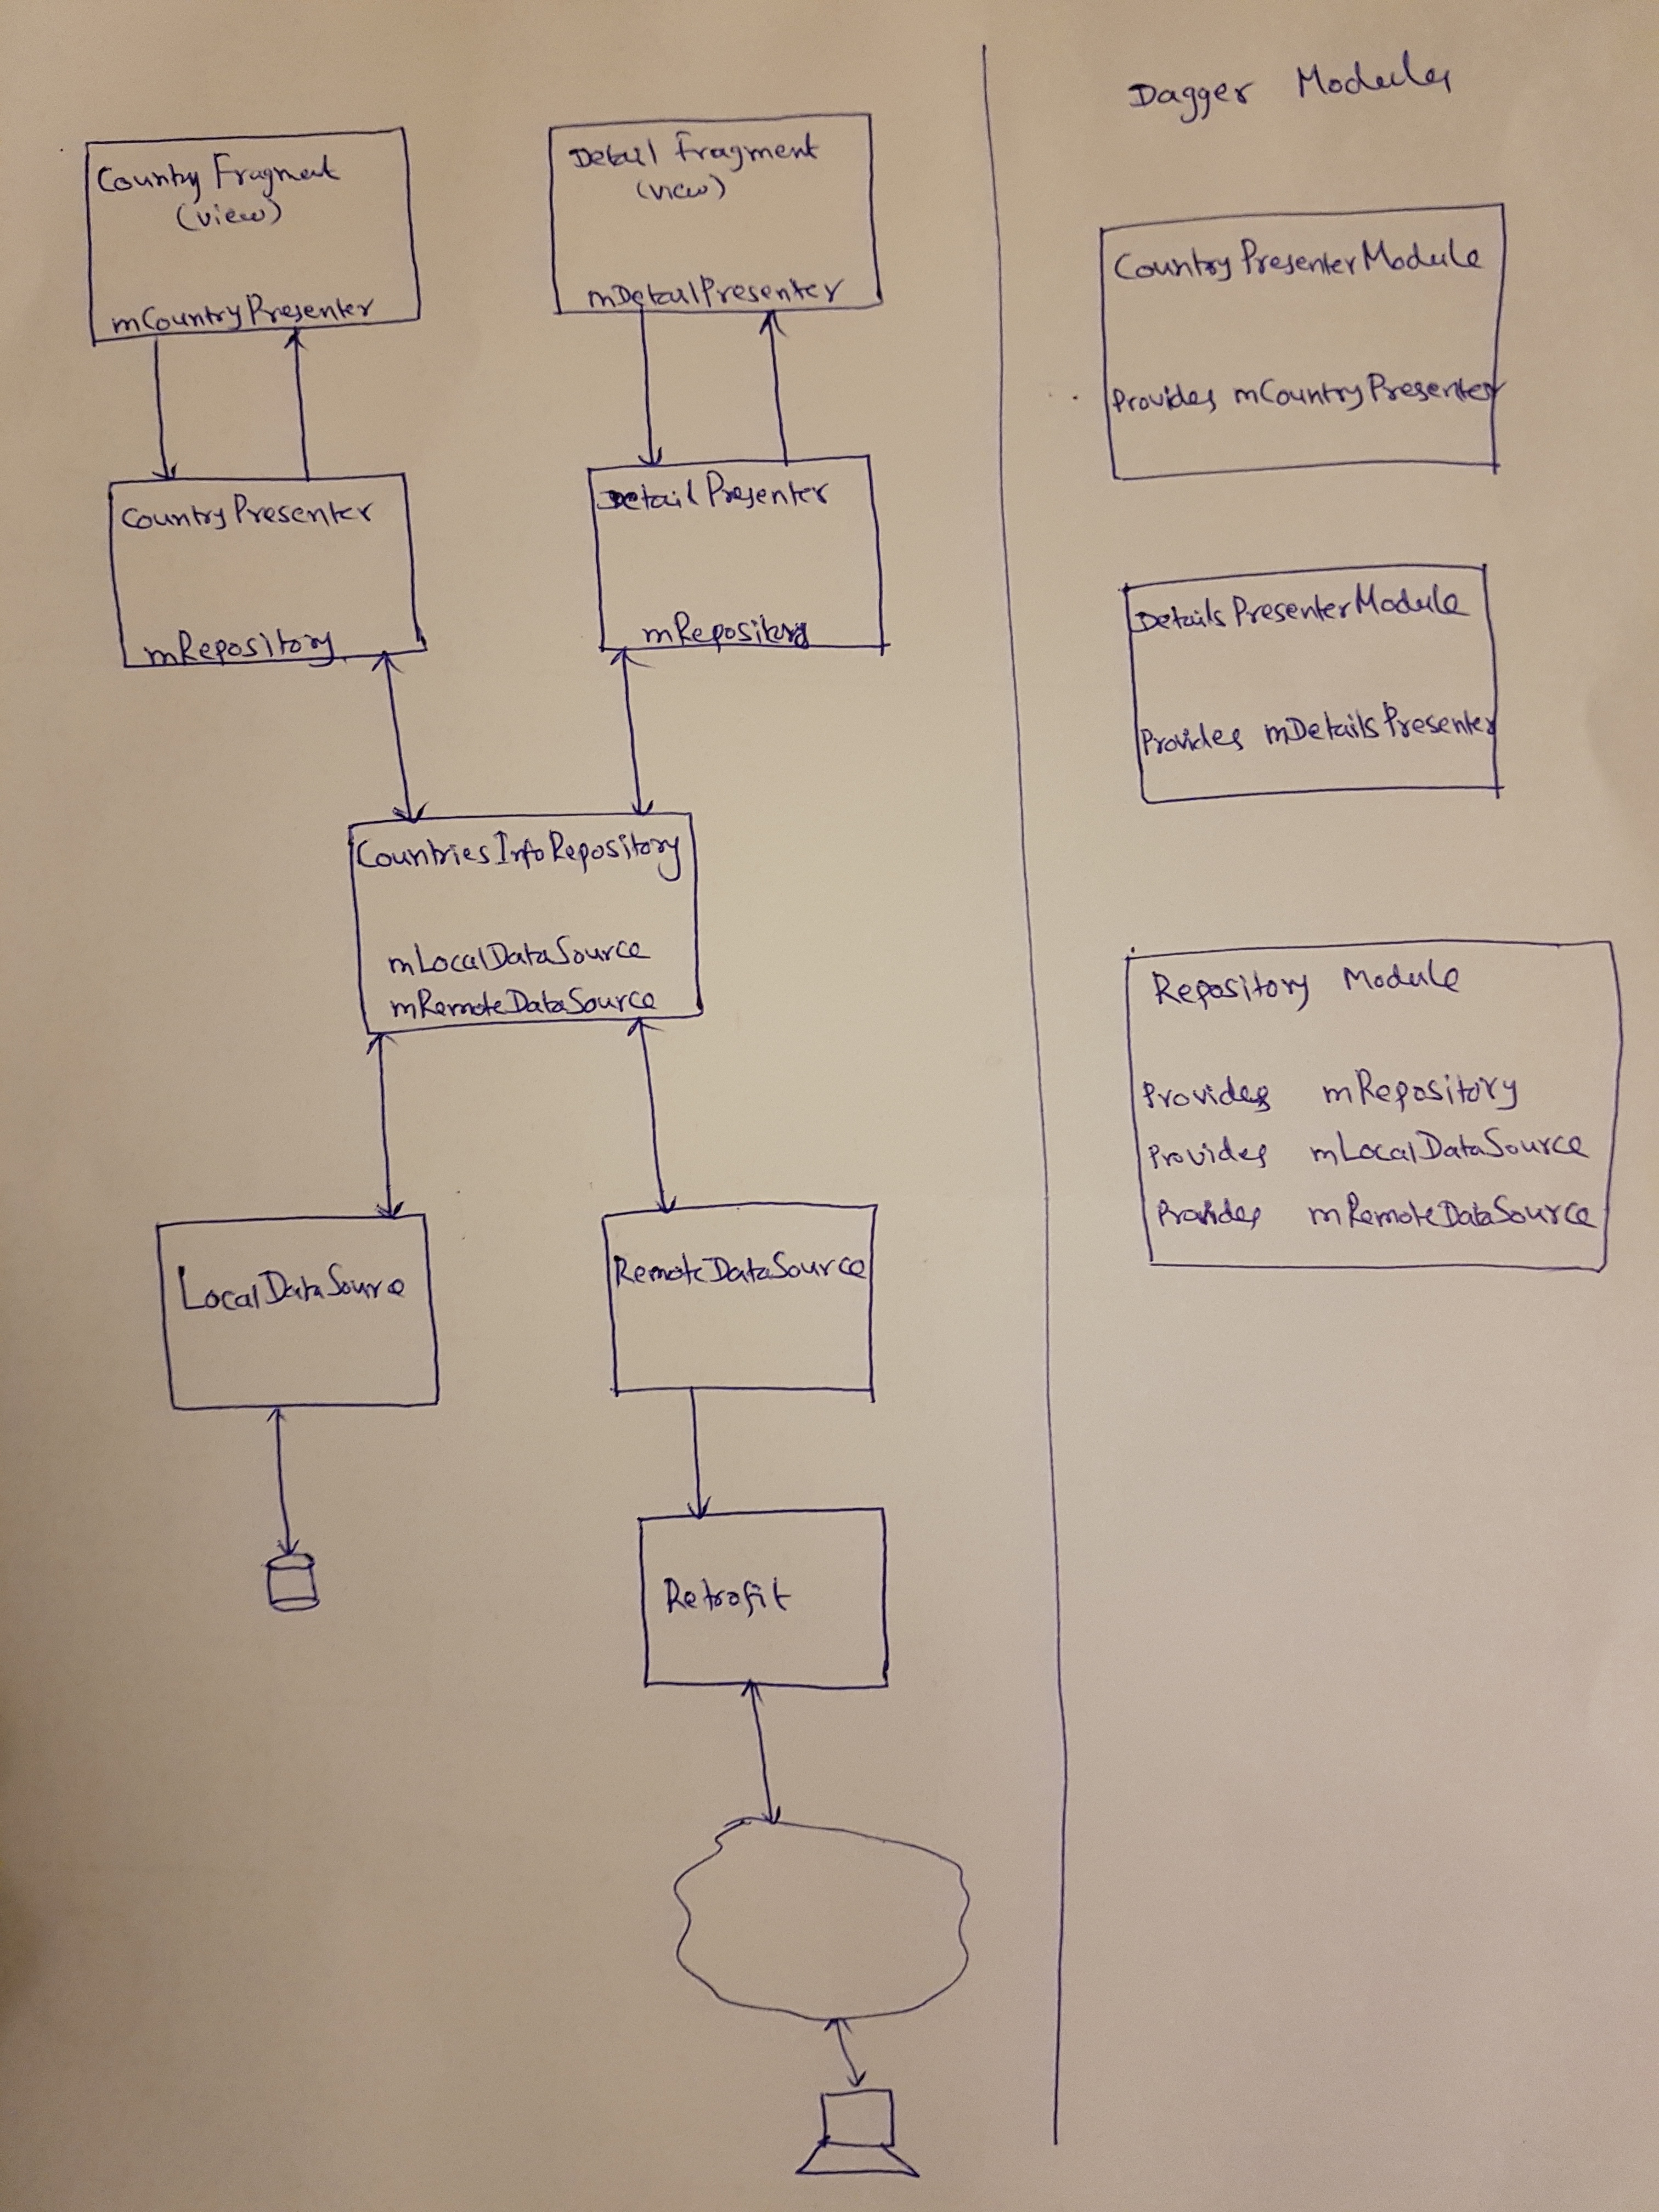 Country Fragment
(view)
mCountryPresenter
Detail Fragment
(view)
mDetailPresenter
CountryPresenter
mRepository
DetailPresenter
mRepository
CountriesInfoRepository
mLocalDataSource
mRemoteDataSource
LocalDataSource
RemoteDataSource
Retrofit
Dagger Modules
CountryPresenterModule
Provides mCountryPresenter
DetailsPresenterModule
Provides mDetailsPresenter
Repository Module
Provides mRepository
Provides mLocalDataSource
Provides mRemoteDataSource